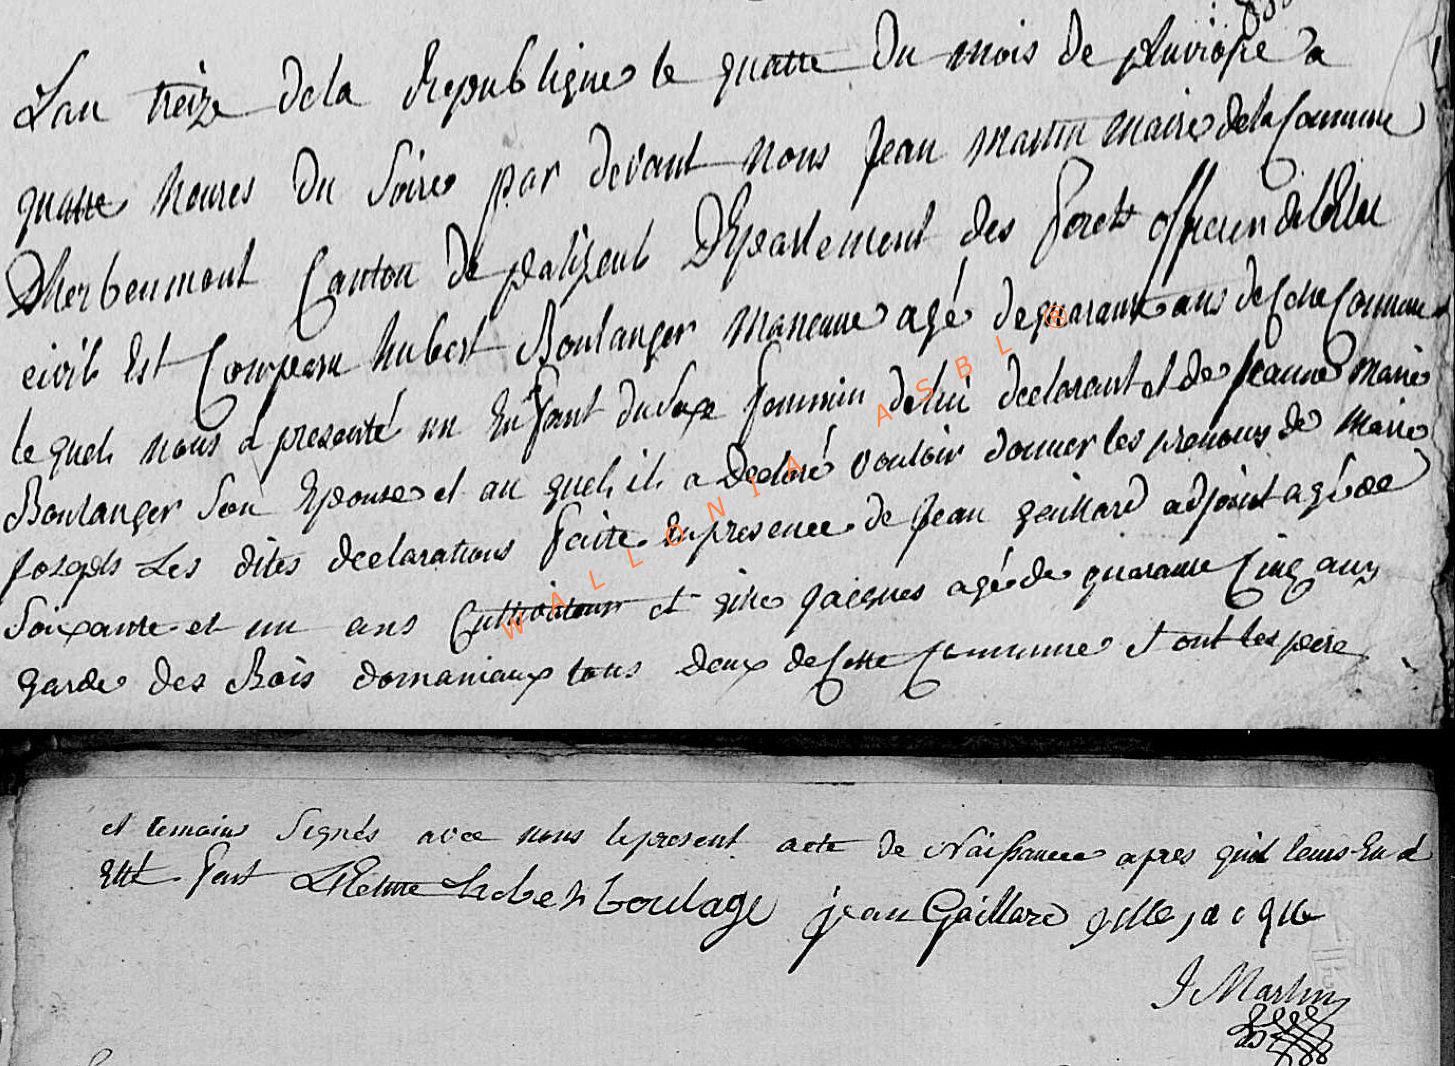 Lan treize dela Republique le quattre du mois de pluviose a
quattre heures du Soire par devant nous Jean Martin maire dela Commune
Dherbeumont Canton de paliseul Departement des forets officier de letat
civil Est Comparu hubert Boulanger Maneuvre agé de quarante ans de Cette Commune
le quel nous a presenté un Enfant du Sexe feminin de lui declarant et de Jeanne Marie
Boulanger Son Epouse et au quel il a declaré vouloir donner les prenoms de Marie
Joseph Les dites declarations faite En presence de Jean gaillard adjoint agé de
Soixante et un ans Cultivateur et gile Jacques agé de quarante Cinq ans
garde des Bois domaniaux tous deux de Cette Commune et ont les pere
et temoins Signés avec nous le present acte de Naissance apres quil leurs En a
Etté fait LEcture hubert boulage jean Gaillard gille jacque
J Martin
WALLONIA ASBL ®